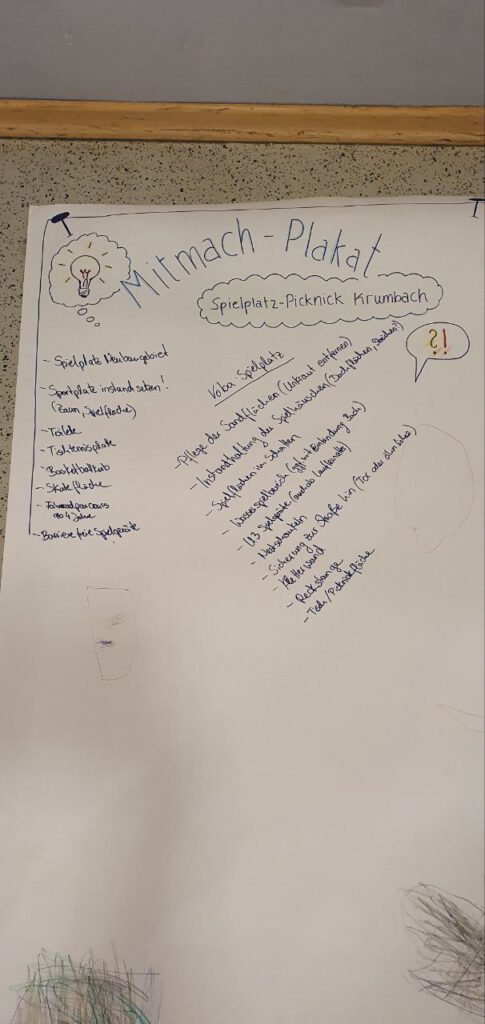 Mitmach-Plakat
Spielplatz-Picknick Krumbach
?!
- Spielplatz Neubaugebiet
- Sportplatz instand setzen!
(Zaun, Spielfläche)
- Toilette
- Tischtennisplatte
- Basketballkorb
- Skatefläche
- Fahrradparcours
ab 4 Jahre
- Barrierefreie Spielgeräte
Voba Spielplatz
- Pflege der Sandflächen (Unkraut entfernen)
- Instandhaltung der Spielhäuschen (Dachflächen, streichen?)
- Spielflächen im Schatten
- Wasserspielbereich (ggf. mit Einbindung Bach)
- U3 Spielgeräte
- Nestschaukeln
- Sicherung zur Straße hin (Tor oder ähnliches)
- Kletterwand
- Reckstange
- Tisch/Picknickfläche